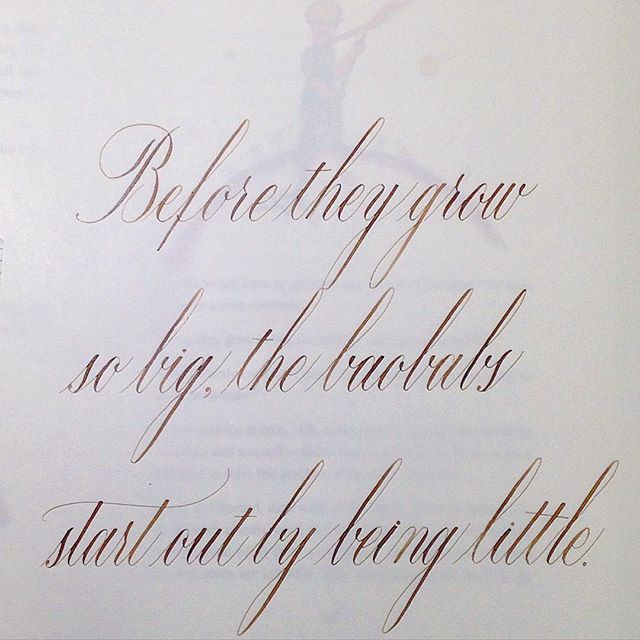 Before they grow
so big, the baobabs
start out by being little.